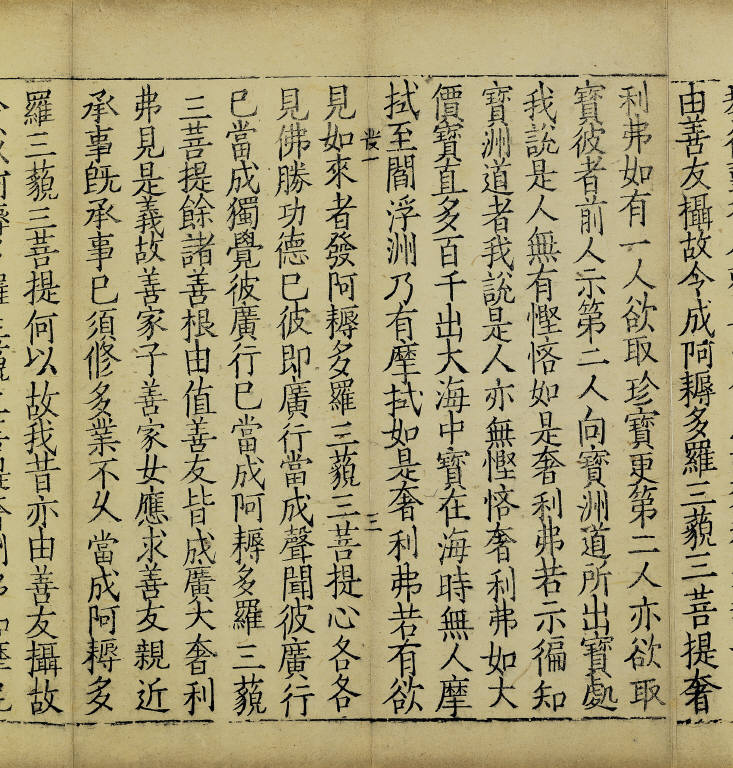 由善友攝故令成阿耨多羅三藐三菩提奢
利弗如有一人欲取珍寶更第二人亦欲取
寶彼者前人示第二人向寶洲道所出寶處
我說是人無有慳悋如是奢利弗若示徧知
寶洲道者我說是人亦無慳悋奢利弗如大
價寶直多百千出大海中寶在海時無人摩
拭至閻浮洲乃有摩拭如是奢利弗若有欲
三
見如來者發阿耨多羅三藐三菩提心各各
見佛勝功德已彼即廣行當成聲聞彼廣行
已當成獨覺彼廣行已當成阿耨多羅三藐
三菩提餘諸善根由值善友皆成廣大奢利
弗見是義故善家子善家女應求善友親近
承事旣承事已須修多業不久當成阿耨多
羅三藐三菩提何以故我昔亦由善友攝故